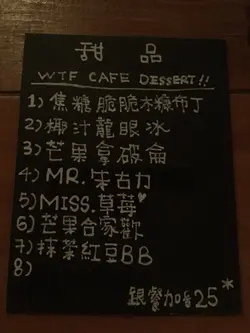 甜品
WTF CAFE DESSERT!!
1) 焦糖脆脆木糠布丁
2) 椰汁龍眼冰
3) 芒果拿破侖
4) MR.朱古力
5) MISS.草莓♥
6) 芒果合家歡
7) 抹茶紅豆BB
8)
跟餐加$25*